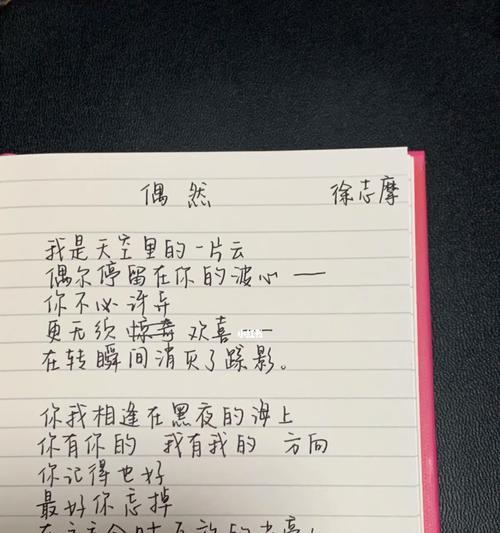 偶然 徐志摩
我是天空里的一片云
偶尔停留在你的波心 ——
你不必讶异
更无须惊奇 欢喜 ——
小红书
在转瞬间消灭了踪影。
你我相逢在黑夜的海上
你有你的 我有我的 方向
你记得也好
最好你忘掉